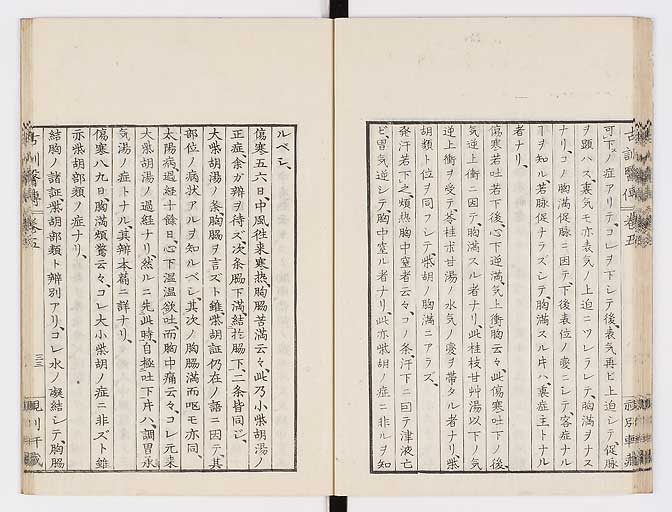 可下ノ症アリテコレヲ下シテ後、表気再ヒ上迫シテ、促脉
ヲ顕ハス、裏気モ亦表気ノ上迫ニツレラレテ、胸満ヲナス
ナリ、コノ胸満促脉ニ因テ、下後表位ノ変ニシテ客症ナル
ヿヲ知ル、若脉促ナラズシテ、胸満スル片ハ、裏症主トナル
者ナリ、
傷寒若吐若下後、心下逆満、気上衝胸云々、此傷寒吐下ノ後、
気逆上衝ニ因テ、胸満スル者ナリ、此桂枝甘艸湯以下ノ気
逆上衝ヲ受テ、苓桂朮甘湯ノ水気ノ変ヲ帯タル者ナリ、柴
胡類ト位ヲ同フシテ、柴胡ノ胸満ニアラズ、
発汗若下之、煩熱胸中窒者云々、コノ条、汗下ニ因テ津液亡
ビ、胃気逆シテ、胸中窒ル者ナリ、此亦柴胡ノ症ニ非ルヲ知
古訓醫傳 巻五
ルベシ、
傷寒五六日、中風往来寒熱、胸脇苦満云々、此乃小柴胡湯ノ
正症、余ガ辨ヲ待ズ、次条脇下満、結於脇下、二条皆同シ、
大柴胡湯ノ条、胸脇ヲ言ズト雖、柴胡証仍在ノ語ニ因テ、其
部位ノ病状アルヲ知ルベシ、其次ノ胸脇満而呕モ亦同、
太陽病過経十餘日、心下温温欲吐、而胸中痛云々、コレ元来
大柴胡湯ノ過経ナリ、然ルニ先此時自極吐下片ハ、調胃承
気湯ノ症トナル、其辨本篇ニ詳ナリ、
傷寒八九日、胸満煩驚云々、コレ大小柴胡ノ症ニ非ズト雖
亦柴胡部類ノ症ナリ、
結胸ノ諸証、柴胡部類ト辨別アリ、コレ水ノ凝結シテ、胸脇
古訓醫傳 巻五
三三